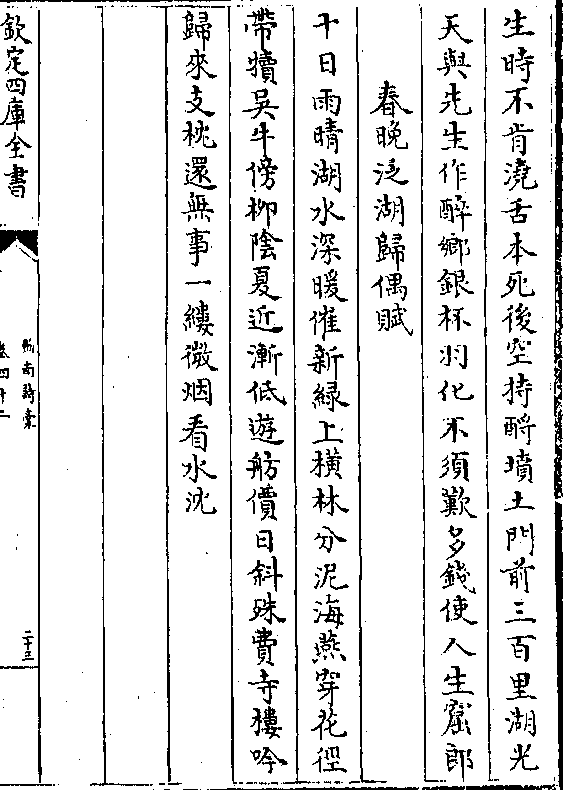 生時不肯澆舌本死後空持酹墳土門前三百里湖光
天與先生作醉鄉銀杯羽化不須歎多錢使人生窟郎
春晩泛湖歸偶賦
十日雨晴湖水深暖催新緑上橫林分泥海燕穿花徑
帶犢吳牛傍栁陰夏近漸低遊舫價日斜殊費寺樓吟
歸來支枕還無事一縷微烟看水沈
欽定四庫全書
劒南詩稾
卷四十二
二十三